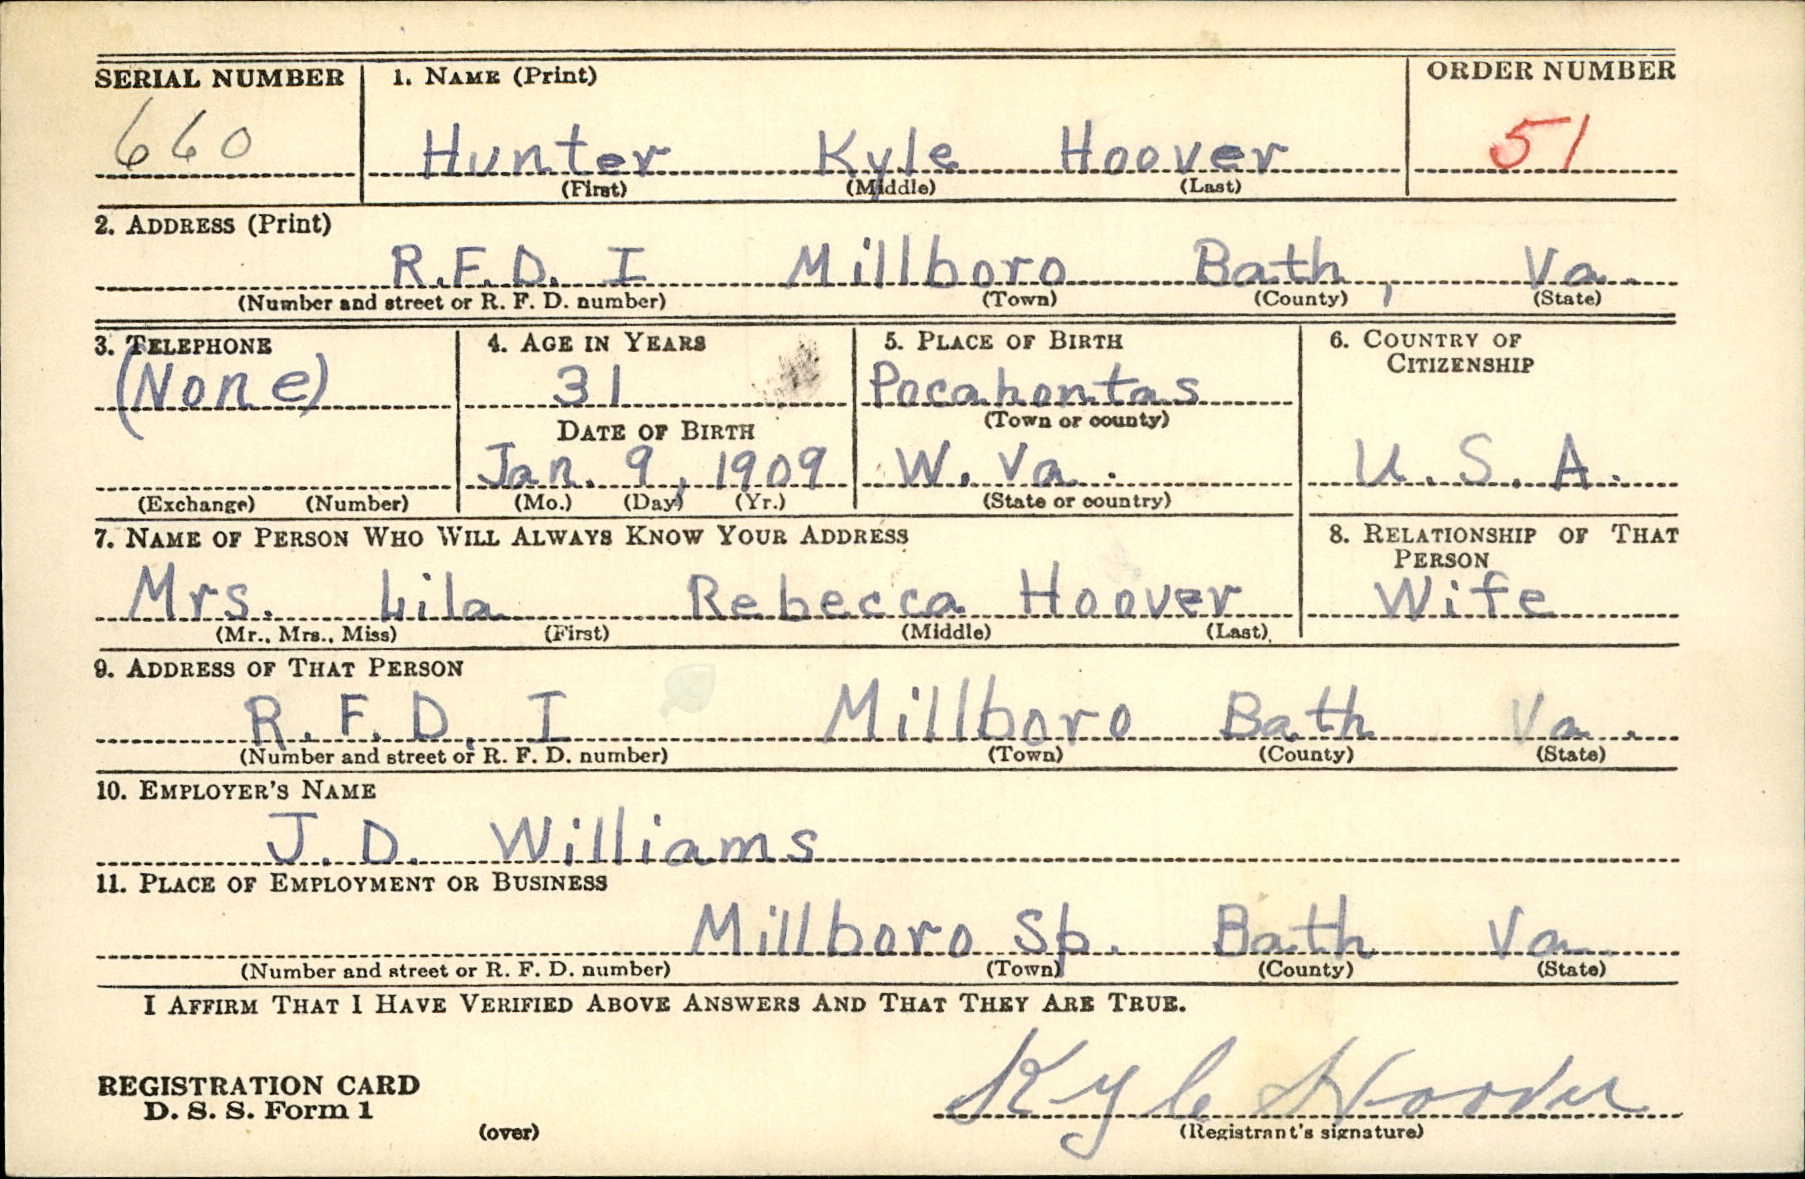 SERIAL NUMBER 1. NAME (Print) ORDER NUMBER
660 Hunter Kyle Hoover 51
(First) (Middle) (Last)
2. ADDRESS (Print)
R.F.D. I Millboro Bath, Va.
(Number and street or R. F. D. number) (Town) (County) (State)
3. TELEPHONE 4. AGE IN YEARS 5. PLACE OF BIRTH 6. COUNTRY OF
CITIZENSHIP
(None) 31 Pocahontas
(Town or county)
DATE OF BIRTH
Jan. 9, 1909 W. Va. U. S. A.
(Exchange) (Number) (Mo.) (Day) (Yr.) (State or country)
7. NAME OF PERSON WHO WILL ALWAYS KNOW YOUR ADDRESS 8. RELATIONSHIP OF THAT
PERSON
Mrs. Lila Rebecca Hoover Wife
(Mr., Mrs., Miss) (First) (Middle) (Last)
9. ADDRESS OF THAT PERSON
R.F.D. I Millboro Bath Va.
(Number and street or R. F. D. number) (Town) (County) (State)
10. EMPLOYER'S NAME
J. D. Williams
11. PLACE OF EMPLOYMENT OR BUSINESS
Millboro Sp. Bath Va.
(Number and street or R. F. D. number) (Town) (County) (State)
I AFFIRM THAT I HAVE VERIFIED ABOVE ANSWERS AND THAT THEY ARE TRUE.
Kyle Hoover
REGISTRATION CARD
D. S. S. Form 1
(over) (Registrant's signature)